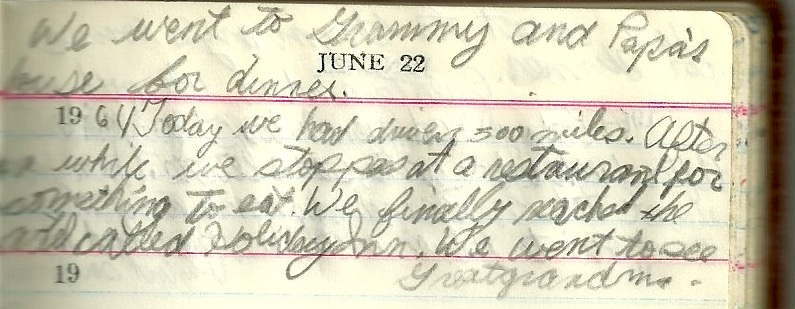 We went to Grammy and Papa's
JUNE 22
house for dinner.
1964 Today we had driven 500 miles. After
a while we stopped at a restaurant for
something to eat. We finally reached the
called Holiday Inn. We went to see
Greatgrandma.
19